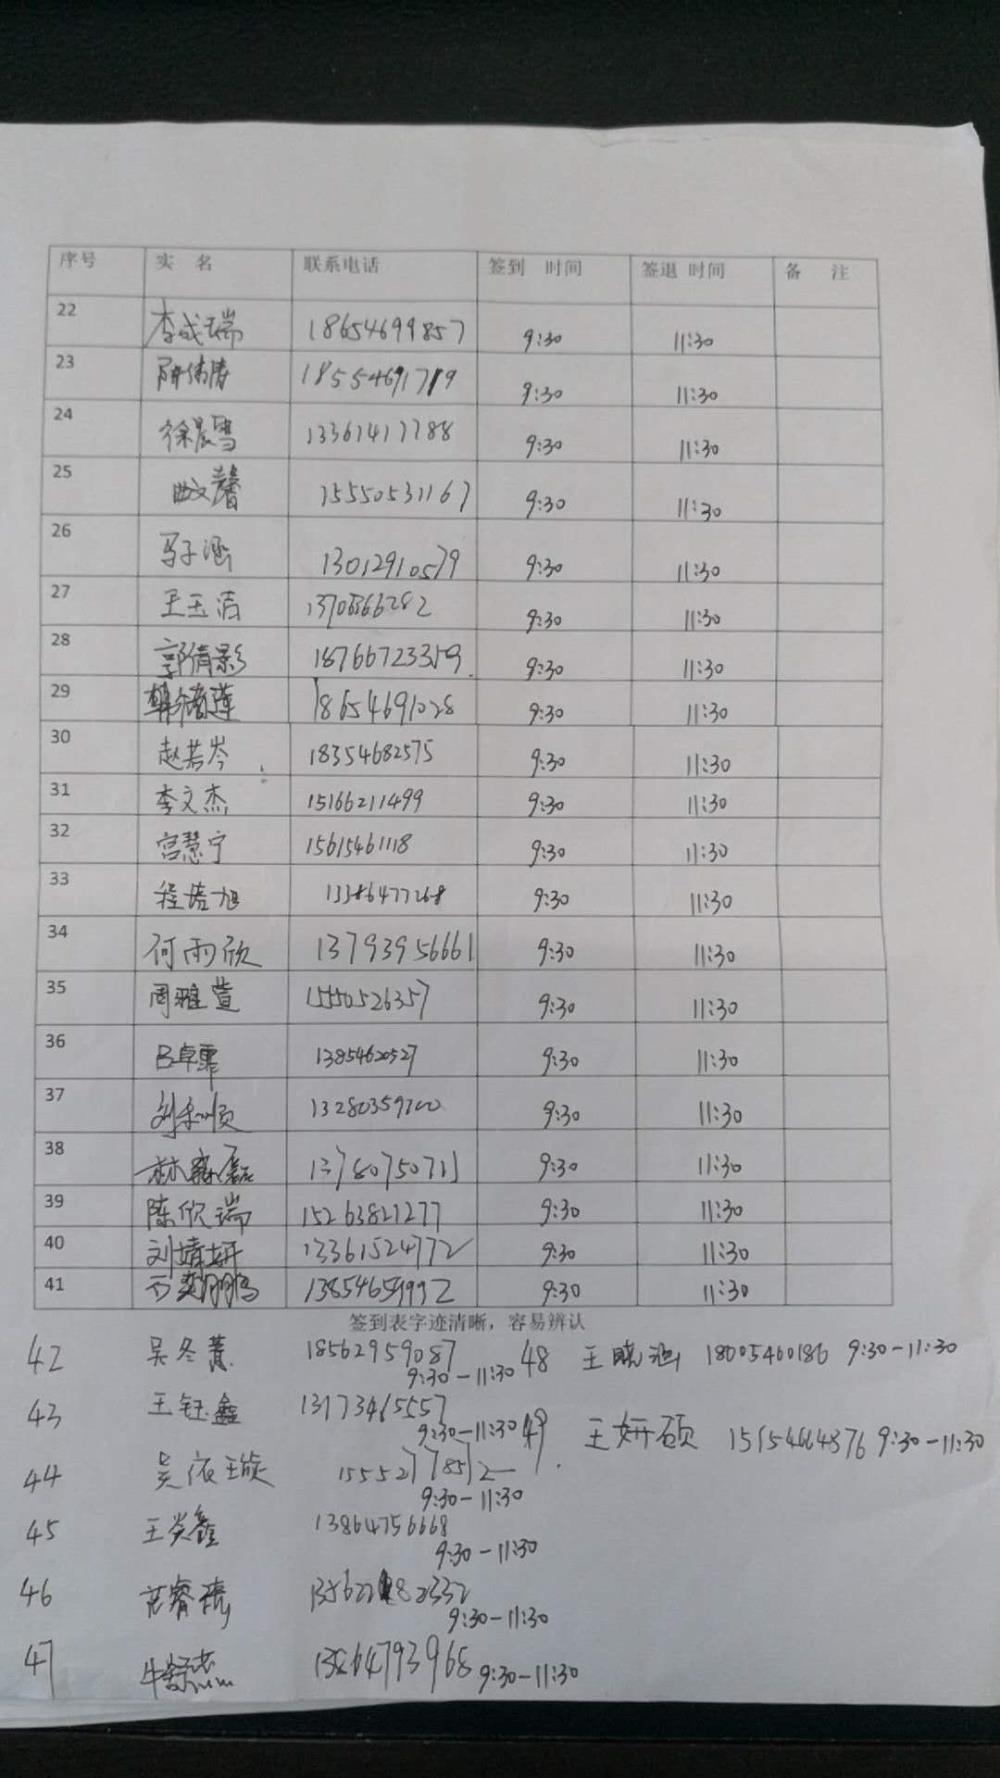 序号 实 名 联系电话 签到 时间 签退 时间 备 注
22 李成瑞 18654699857 9:30 11:30
23 18554691719 9:30 11:30
24 徐晨雪 13361417788 9:30 11:30
25 15550531167 9:30 11:30
26 马子涵 13012910579 9:30 11:30
27 王玉洁 9:30 11:30
28 郭倩影 18766723359 9:30 11:30
29 18654691028 9:30 11:30
30 赵若岑 18354682575 9:30 11:30
31 李文杰 15166211499 9:30 11:30
32 宫慧宁 15615461118 9:30 11:30
33 13386477268 9:30 11:30
34 何雨欣 13793956661 9:30 11:30
35 周雅萱 15550526357 9:30 11:30
36 吕卓霏 13854620527 9:30 11:30
37 13280359700 9:30 11:30
38 13780750711 9:30 11:30
39 陈欣瑞 15263821277 9:30 11:30
40 刘婧妍 13361524772 9:30 11:30
41 9:30 11:30
签到表字迹清晰，容易辨认
42 吴冬薏 18562959087 9:30-11:30 48 王晓涵 18005460186 9:30-11:30
43 王钰鑫 13173465557 9:30-11:30 49 王妍硕 15154664376 9:30-11:30
44 吴依璇 9:30-11:30
45 王炎鑫 13864756668 9:30-11:30
46 9:30-11:30
47 13864793968 9:30-11:30